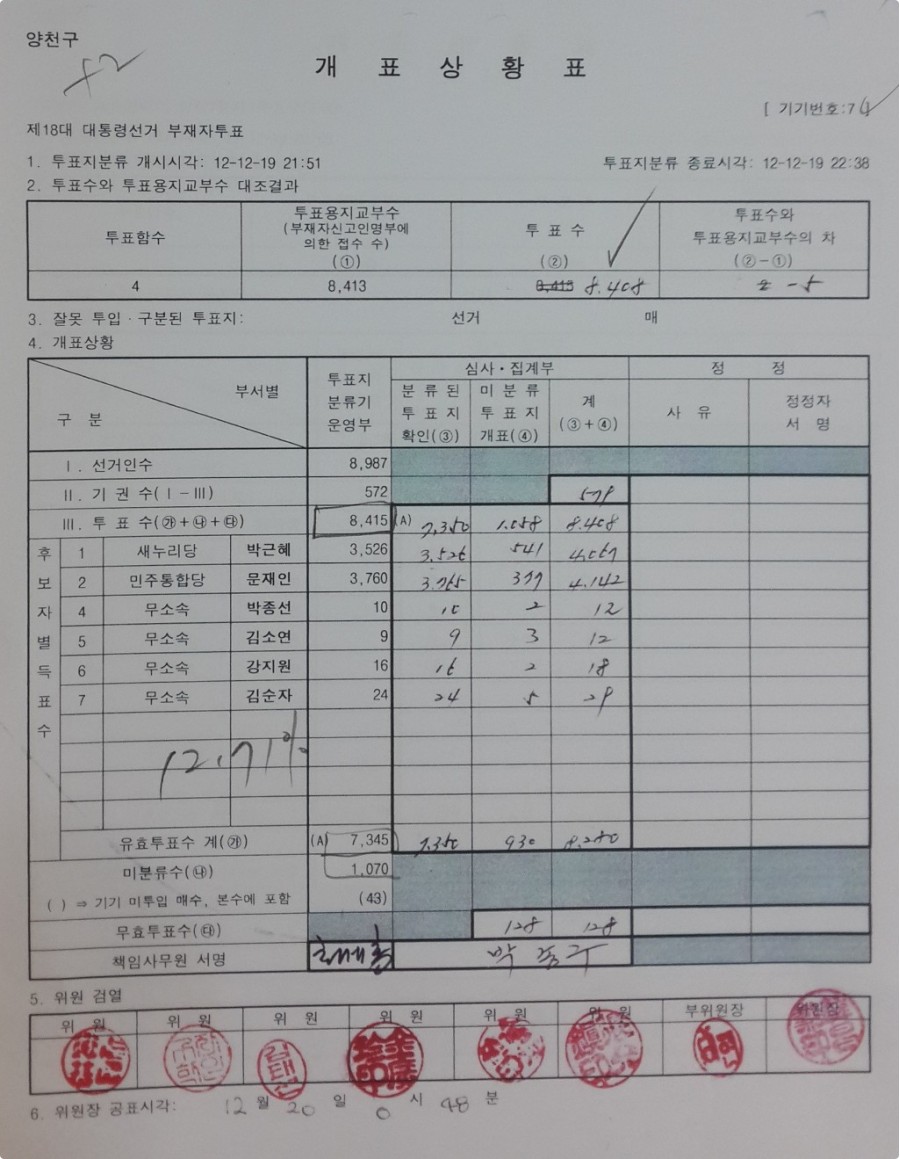 양천구
개 표 상 황 표
[ 기기번호:74]
제18대 대통령선거 부재자투표
1. 투표지분류 개시시각: 12-12-19 21:51 투표지분류 종료시각: 12-12-19 22:38
2. 투표수와 투표용지교부수 대조결과
투표함수 투표용지교부수 (부재자신고인명부에 의한 접수 수) (①) 투 표 수 (②) 투표수와 투표용지교부수의 차 (②-①)
4 8,413 8,415 8.408 2 -5
3. 잘못 투입·구분된 투표지: 선거 매
4. 개표상황
구 분 부서별 투표지 분류기 운영부 심사·집계부 정 정
분 류 된 투 표 지 확인(③) 미 분 류 투 표 지 개표(④) 계 (③+④) 사 유 정정자 서 명
Ⅰ. 선거인수 8,987
Ⅱ. 기 권 수(Ⅰ-Ⅲ) 572 579
Ⅲ. 투 표 수(㉮+㉯+㉰) 8,415 (A) 7,350 1.058 8.408
후보자별득표수
1 새누리당 박근혜 3,526 3.526 541 4.067
2 민주통합당 문재인 3,760 3.765 377 4.142
4 무소속 박종선 10 10 2 12
5 무소속 김소연 9 9 3 12
6 무소속 강지원 16 16 2 18
7 무소속 김순자 24 24 5 29
12.71%
유효투표수 계(㉮) (A) 7,345 7.350 930 8.280
미분류수(㉯) 1,070
( ) ⇒ 기기 미투입 매수, 본수에 포함 (43)
무효투표수(㉰) 128 128
책임사무원 서명
5. 위원 검열
위 원 위 원 위 원 위 원 위 원 위 원 부위원장 위원장
6. 위원장 공표시각: 12 월 20 일 0 시 48 분